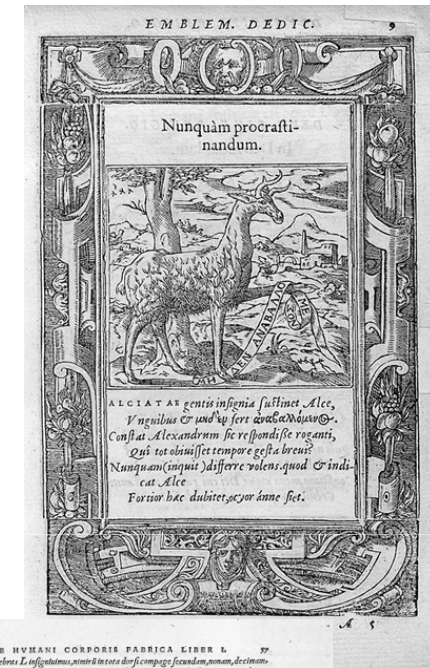 EMBLEM. DEDIC. 9
Nunquàm procrasti-
nandum.
ΜΗΔΕΝ ΑΝΑΒΑΛΛΟ
ΜΕ
ALCIATAE gentis insignia sustinet Alce,
Vnguibus & μηδ᾽ὲν fert ἀναβαλλόμενος.
Constat Alexandrum sic respondisse roganti,
Qui tot obiuisset tempore gesta breui?
Nunquam (inquit) differre volens. quod & indi-
cat Alce
Fortior hæc dubitet, ocyor ánne siet.
A 5
E HVMANI CORPORIS FABRICA LIBER I. 57
ebras L insigniuimus, nimirũ in tota dorsi compage secundam, nonam, decimam,